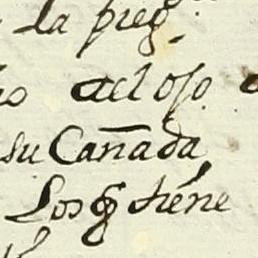 la preg.
del oso
su Cañada
Los q̃ tiene